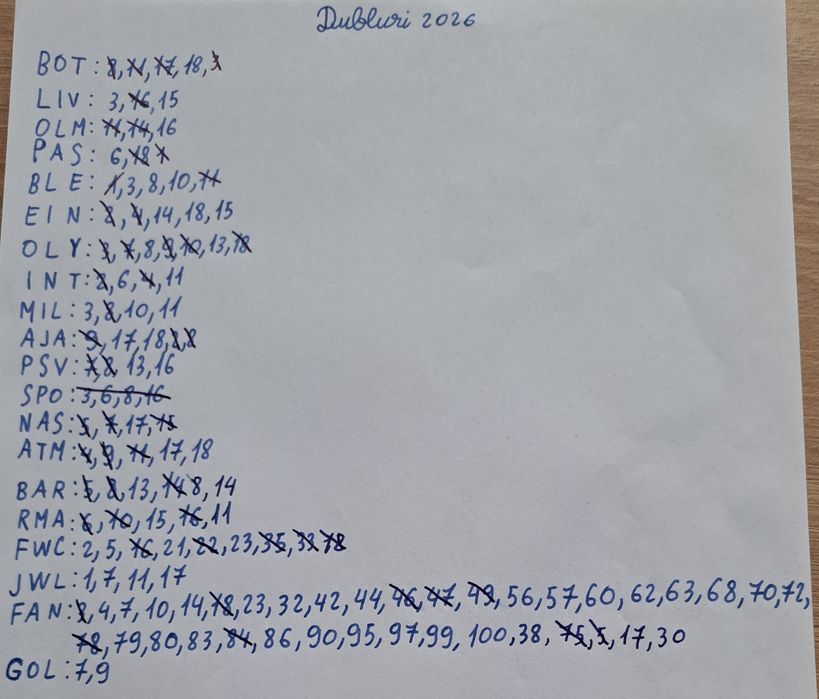 Dubluri 2026
BOT: 8, 11, 17, 18, 3
LIV: 3, 16, 15
OLM: 11, 14, 16
PAS: 6, 18 1
BLE: 1, 3, 8, 10, 11
EIN: 2, 4, 14, 18, 15
OLY: 3, 7, 8, 9, 10, 13, 18
INT: 2, 6, 4, 11
MIL: 3, 8, 10, 11
AJA: 9, 17, 18, 2, 8
PSV: 7, 8 13, 16
SPO: 3, 6, 8, 16
NAS: 5, 7, 17, 15
ATM: 4, 9, 11, 17, 18
BAR: 5, 8, 13, 14 8, 14
RMA: 6, 10, 15, 16, 11
FWC: 2, 5, 16, 21, 22, 23, 35, 33 18
JWL: 1, 7, 11, 17
FAN: 2, 4, 7, 10, 14, 18, 23, 32, 42, 44, 46, 47, 49, 56, 57, 60, 62, 63, 68, 70, 72,
78, 79, 80, 83, 84, 86, 90, 95, 97, 99, 100, 38, 75, 5, 17, 30
GOL: 7, 9